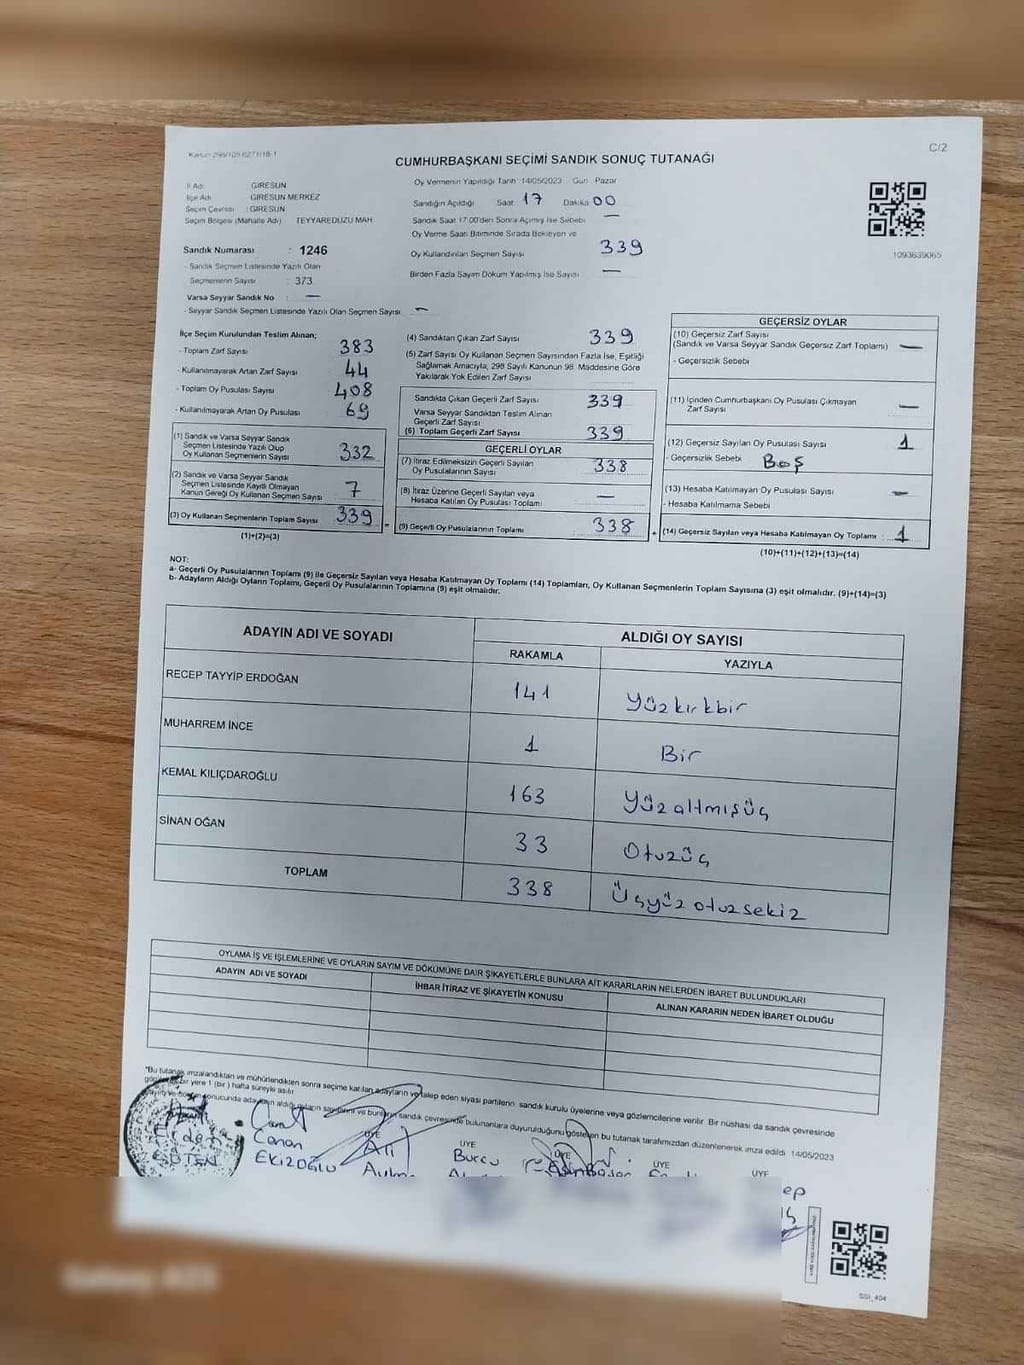 Kanun 298/105,6271/18-1
C/2
CUMHURBAŞKANI SEÇİMİ SANDIK SONUÇ TUTANAĞI
İl Adı GİRESUN
İlçe Adı GİRESUN MERKEZ
Seçim Çevresi : GİRESUN
Seçim Bölgesi (Mahalle Adı) TEYYAREDÜZÜ MAH
Sandık Numarası : 1246
- Sandık Seçmen Listesinde Yazılı Olan
Seçmenlerin Sayısı : 373
Varsa Seyyar Sandık No : —
- Seyyar Sandık Seçmen Listesinde Yazılı Olan Seçmen Sayısı —
Oy Vermenin Yapıldığı Tarih 14/05/2023 Gün Pazar
Sandığın Açıldığı Saat 17 Dakika 00
Sandık Saat 17:00'den Sonra Açılmış İse Sebebi —
Oy Verme Saati Bitiminde Sırada Bekleyen ve
Oy Kullandırılan Seçmen Sayısı 339
Birden Fazla Sayım Döküm Yapılmış İse Sayısı —
1093639065
İlçe Seçim Kurulundan Teslim Alınan;
- Toplam Zarf Sayısı 383
- Kullanılmayarak Artan Zarf Sayısı 44
- Toplam Oy Pusulası Sayısı 408
- Kullanılmayarak Artan Oy Pusulası 69
(1) Sandık ve Varsa Seyyar Sandık
Seçmen Listesinde Yazılı Olup
Oy Kullanan Seçmenlerin Sayısı 332
(2) Sandık ve Varsa Seyyar Sandık
Seçmen Listesinde Kayıtlı Olmayan
Kanun Gereği Oy Kullanan Seçmen Sayısı 7
(3) Oy Kullanan Seçmenlerin Toplam Sayısı 339
(1)+(2)=(3)
(4) Sandıktan Çıkan Zarf Sayısı 339
(5) Zarf Sayısı Oy Kullanan Seçmen Sayısından Fazla İse, Eşitliği
Sağlamak Amacıyla; 298 Sayılı Kanunun 98. Maddesine Göre
Yakılarak Yok Edilen Zarf Sayısı
Sandıkta Çıkan Geçerli Zarf Sayısı 339
Varsa Seyyar Sandıktan Teslim Alınan
Geçerli Zarf Sayısı
(6) Toplam Geçerli Zarf Sayısı 339
GEÇERLİ OYLAR
(7) İtiraz Edilmeksizin Geçerli Sayılan
Oy Pusulalarının Sayısı 338
(8) İtiraz Üzerine Geçerli Sayılan veya
Hesaba Katılan Oy Pusulası Toplamı —
(9) Geçerli Oy Pusulalarının Toplamı 338
GEÇERSİZ OYLAR
(10) Geçersiz Zarf Sayısı
(Sandık ve Varsa Seyyar Sandık Geçersiz Zarf Toplamı) —
- Geçersizlik Sebebi
(11) İçinden Cumhurbaşkanı Oy Pusulası Çıkmayan
Zarf Sayısı —
(12) Geçersiz Sayılan Oy Pusulası Sayısı 1
- Geçersizlik Sebebi Boş
(13) Hesaba Katılmayan Oy Pusulası Sayısı —
- Hesaba Katılmama Sebebi
(14) Geçersiz Sayılan veya Hesaba Katılmayan Oy Toplamı : 1
(10)+(11)+(12)+(13)=(14)
NOT:
a- Geçerli Oy Pusulalarının Toplamı (9) ile Geçersiz Sayılan veya Hesaba Katılmayan Oy Toplamı (14) Toplamları, Oy Kullanan Seçmenlerin Toplam Sayısına (3) eşit olmalıdır. (9)+(14)=(3)
b- Adayların Aldığı Oyların Toplamı, Geçerli Oy Pusulalarının Toplamına (9) eşit olmalıdır.
ADAYIN ADI VE SOYADI ALDIĞI OY SAYISI
RAKAMLA YAZIYLA
RECEP TAYYİP ERDOĞAN 141 Yüzkırkbir
MUHARREM İNCE 1 Bir
KEMAL KILIÇDAROĞLU 163 Yüzaltmışüç
SİNAN OĞAN 33 Otuzüç
TOPLAM 338 Üçyüzotuzsekiz
OYLAMA İŞ VE İŞLEMLERİNE VE OYLARIN SAYIM VE DÖKÜMÜNE DAİR ŞİKAYETLERLE BUNLARA AİT KARARLARIN NELERDEN İBARET BULUNDUKLARI
ADAYIN ADI VE SOYADI İHBAR İTİRAZ VE ŞİKAYETİN KONUSU ALINAN KARARIN NEDEN İBARET OLDUĞU
"Bu tutanak imzalandıktan ve mühürlendikten sonra seçime katılan adayların ve talep eden siyasi partilerin sandık kurulu üyelerine veya gözlemcilerine verilir. Bir nüshası da sandık çevresinde
bir yere 1 (bir) hafta süreyle asılır
sonucunda adayların aldığı oyların sayılarını ve bunların sandık çevresinde bulunanlara duyurulduğunu gösteren bu tutanak tarafımızdan düzenlenerek imza edildi 14/05/2023
ÜYE ÜYE ÜYE ÜYE ÜYE
Canan Ali Burcu
EKİZOĞLU
SSI_404